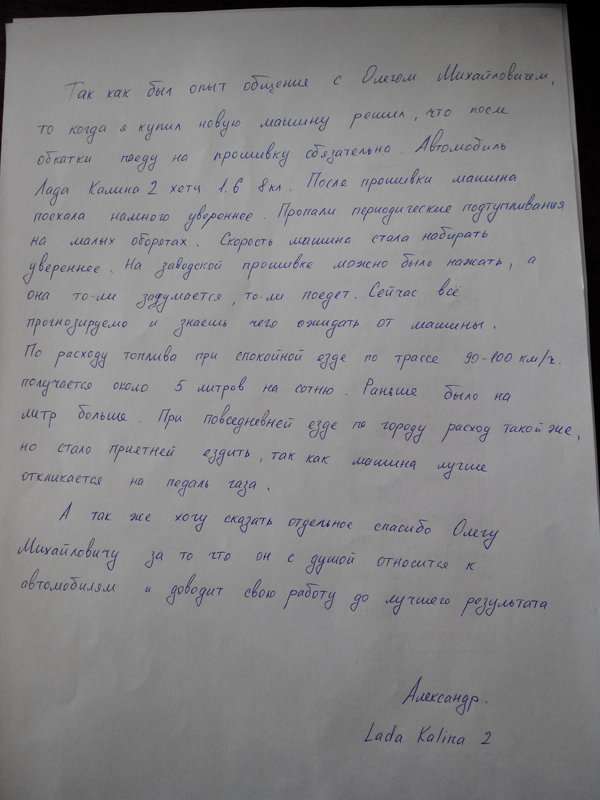 Так как был опыт общения с Олегом Михайловичем,
то когда я купил новую машину решил, что после
обкатки поеду на прошивку обязательно. Автомобиль
Лада Калина 2 хетч 1.6 8кл. После прошивки машина
поехала намного увереннее. Пропали периодические подтупливания
на малых оборотах. Скорость машина стала набирать
увереннее. На заводской прошивке можно было нажать, а
она то-ли задумается, то-ли поедет. Сейчас всё
прогнозируемо и знаешь чего ожидать от машины.
По расходу топлива при спокойной езде по трассе 90-100 км/ч.
получается около 5 литров на сотню. Раньше было на
литр больше. При повседневней езде по городу расход такой же,
но стало приятней ездить, так как машина лучше
откликается на педаль газа.
А так же хочу сказать отдельное спасибо Олегу
Михайловичу за то что он с душой относится к
автомобилям и доводит свою работу до лучшего результата
Александр.
Lada Kalina 2